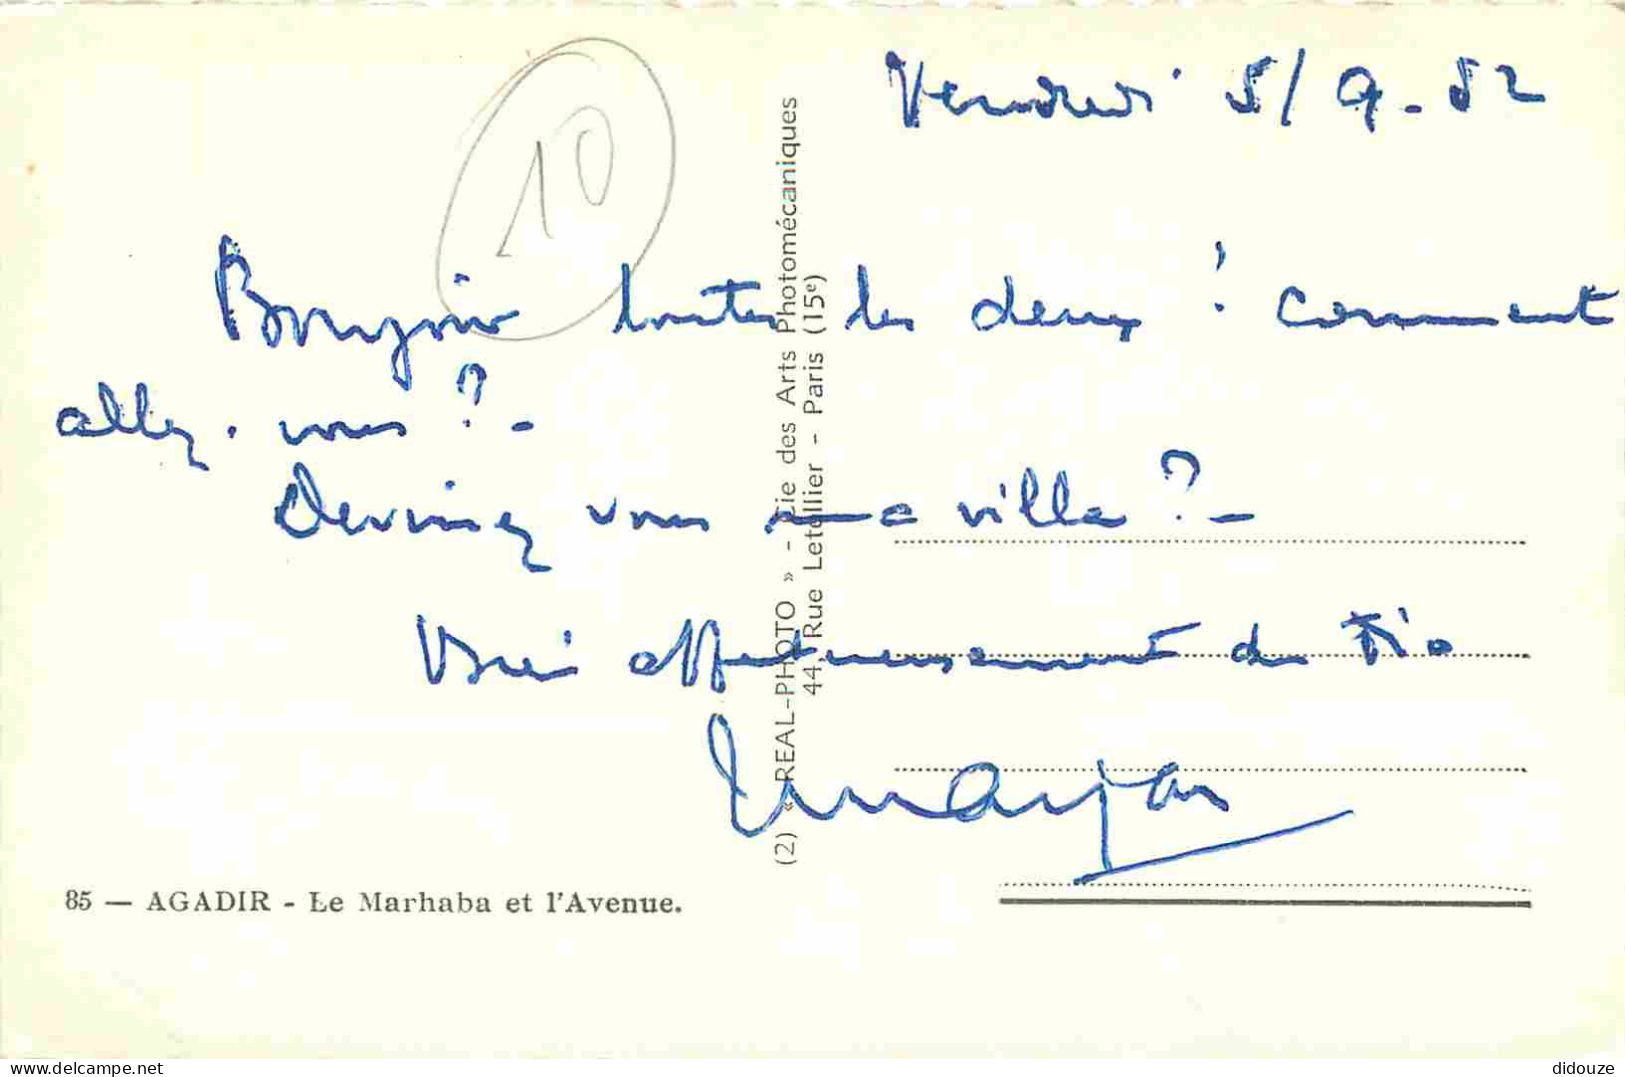 Vendredi 5/9.52
10
Bonjour toutes les deux ! comment
allez-vous ? -
Devinez vous ma ville ? -
Bien affectueusement du
(2) « REAL-PHOTO » - Cie des Arts Photomécaniques
44, Rue Letellier - Paris (15e)
85 — AGADIR - Le Marhaba et l'Avenue.
delcampe.net
didouze